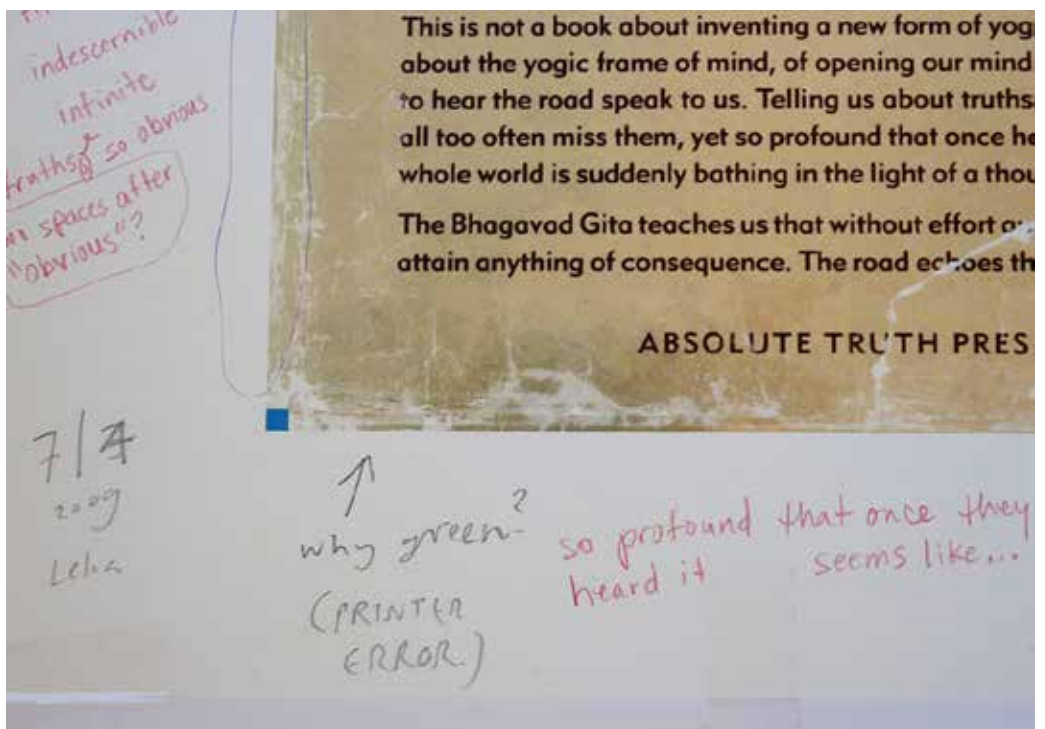 indescernible
infinite
truths so obvious
spaces after
"obvious"?
This is not a book about inventing a new form of yog
about the yogic frame of mind, of opening our mind
to hear the road speak to us. Telling us about truths
all too often miss them, yet so profound that once he
whole world is suddenly bathing in the light of a thou
The Bhagavad Gita teaches us that without effort
attain anything of consequence. The road echoes th
ABSOLUTE TRUTH PRES
7/7
2009
Lelia
why green?
(PRINTER
ERROR.)
so profound that once they
heard it seems like...